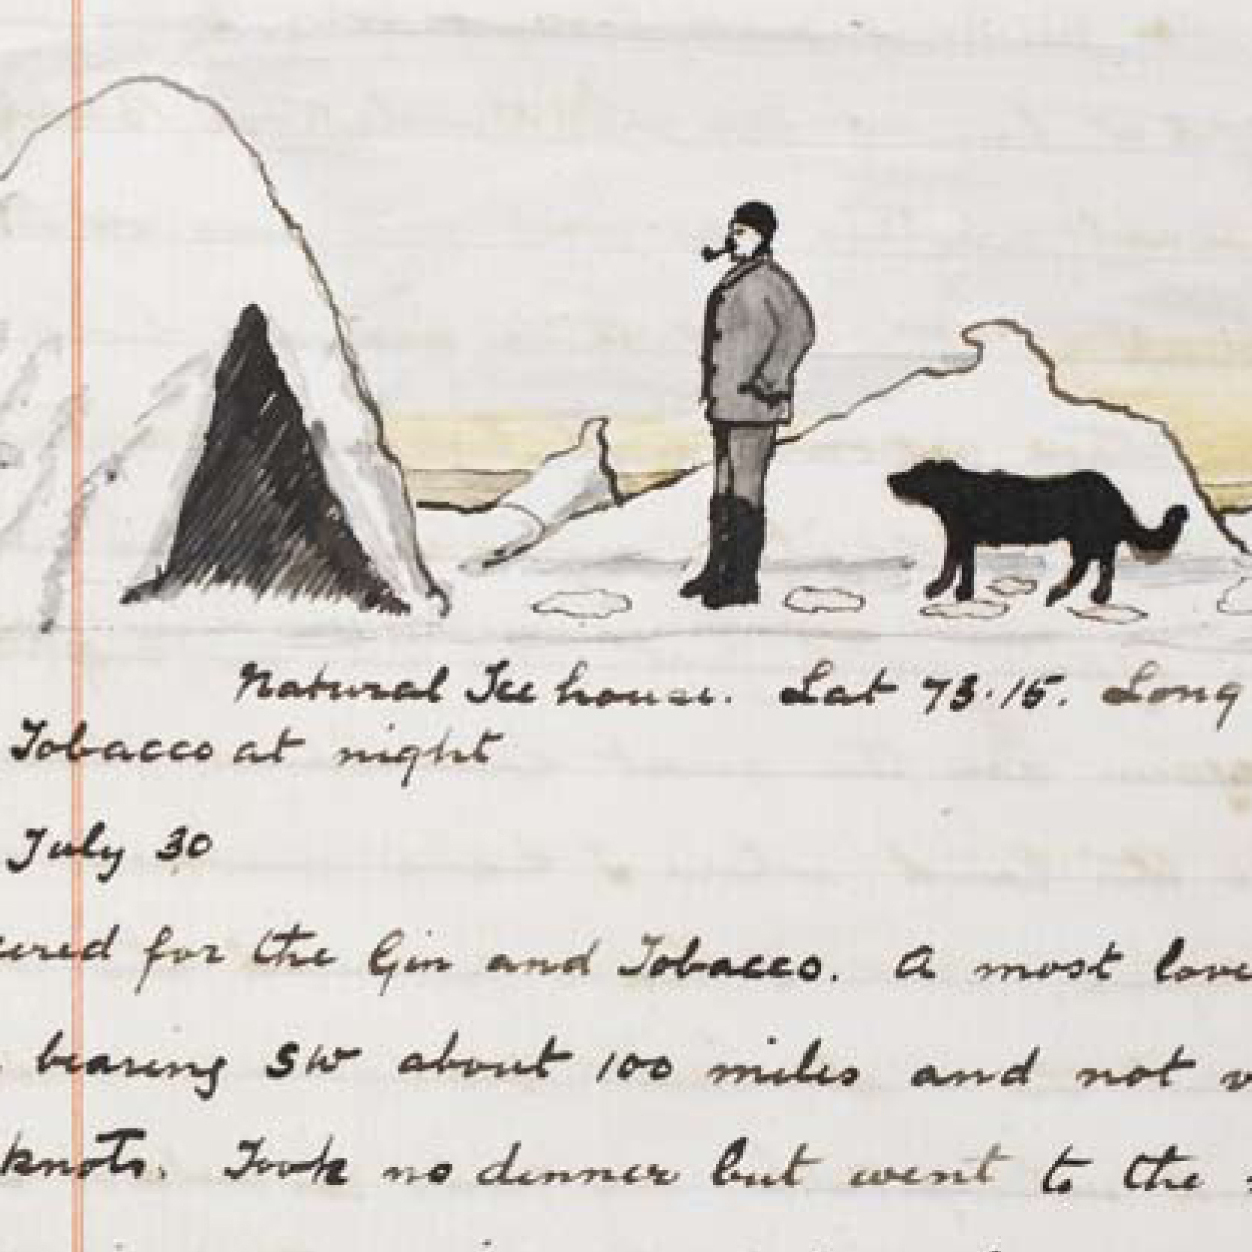 Natural Ice house. Lat 73.15. Long
Tobacco at night
July 30
ered for the Gin and Tobacco. A most love
bearing SW about 100 miles and not
knots. Took no dinner but went to the